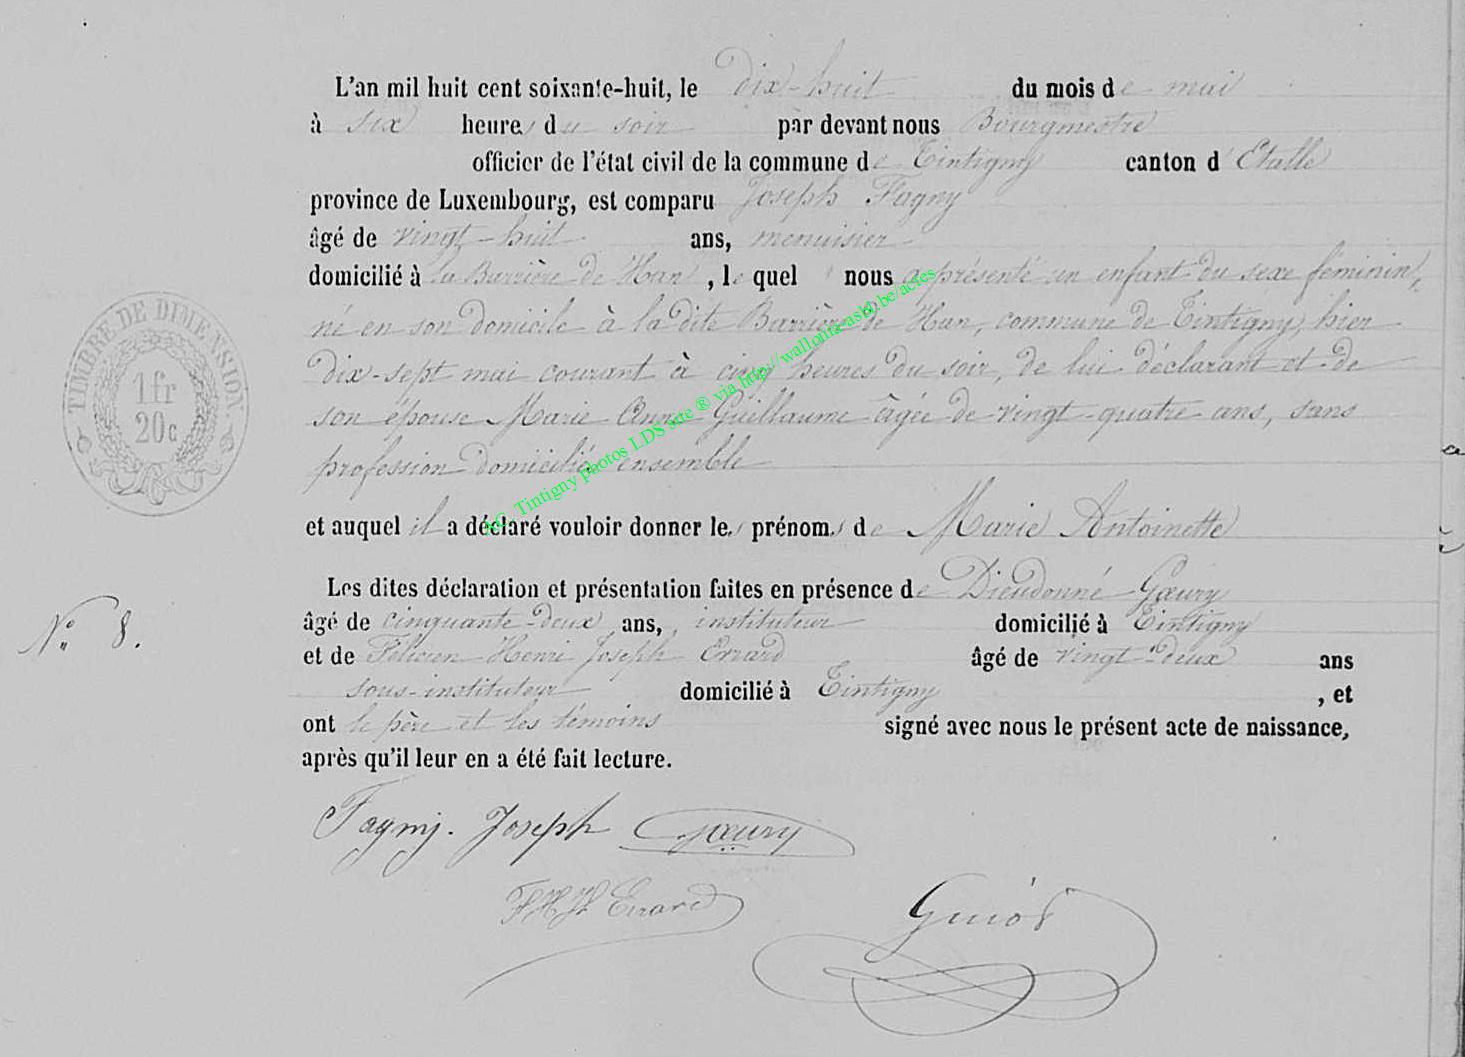 L'an mil huit cent soixante-huit, le dix-huit du mois de mai
à six heures du soir par devant nous Bourgmestre
officier de l'état civil de la commune de Tintigny canton d'Etalle
province de Luxembourg, est comparu Joseph Fagny
âgé de vingt-huit ans, menuisier
domicilié à la Barrière de Han, lequel nous a présenté un enfant du sexe féminin,
né en son domicile à la dite Barrière de Han, commune de Tintigny, hier
dix-sept mai courant à cinq heures du soir, de lui déclarant et de
son épouse Marie Anne Guillaume âgée de vingt-quatre ans, sans
profession domiciliés ensemble
et auquel il a déclaré vouloir donner les prénoms de Marie Antoinette
Les dites déclaration et présentation faites en présence de Dieudonné Gœury
âgé de cinquante-deux ans, instituteur domicilié à Tintigny
et de Félicien Henri Joseph Errard âgé de vingt-deux ans
sous-instituteur domicilié à Tintigny, et
ont le père et les témoins signé avec nous le présent acte de naissance,
après qu'il leur en a été fait lecture.
Fagny. Joseph Gœury
Errard
TIMBRE DE DIMENSION
1 fr
20 c
N° 8.
AC. Tintigny photos LDS site ® via http://wallonia-asbl.be/actes